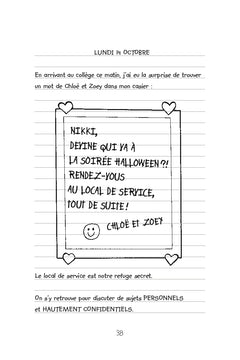 LUNDI 14 OCTOBRE
En arrivant au collège ce matin, j'ai eu la surprise de trouver
un mot de Chloë et Zoey dans mon casier :
NIKKI,
DEVINE QUI VA À
LA SOIRÉE HALLOWEEN?!
RENDEZ-VOUS
AU LOCAL DE SERVICE,
TOUT DE SUITE!
CHLOË ET ZOEY
Le local de service est notre refuge secret.
On s'y retrouve pour discuter de sujets PERSONNELS
et HAUTEMENT CONFIDENTIELS.
38